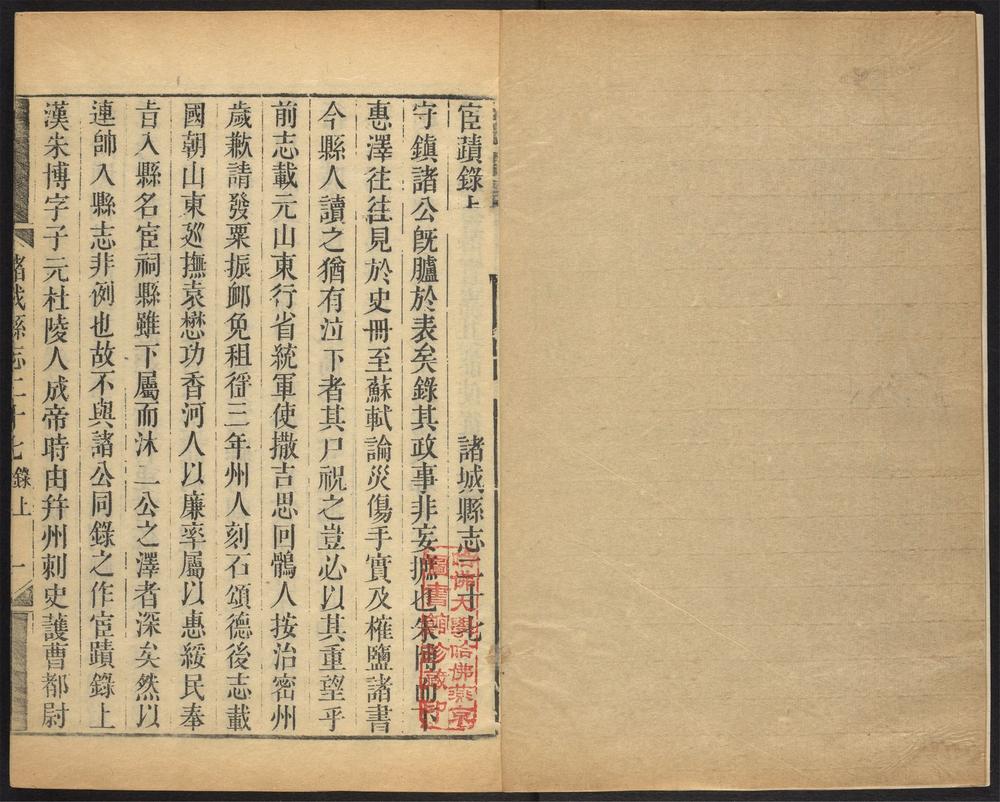 宦蹟錄上　諸城縣志二十七
守鎮諸公旣臚於表矣錄其政事非妄摭也朱博而下
惠澤往往見於史冊至蘇軾論災傷手實及榷鹽諸書
今縣人讀之猶有泣下者其尸祝之豈必以其重望乎
前志載元山東行省統軍使撒吉思回鶻人按治密州
歲歉請發粟振卹免租徭三年州人刻石頌德後志載
國朝山東廵撫袁懋功香河人以廉率屬以惠綏民奉
旨入縣名宦祠縣雖下屬而沐二公之澤者深矣然以
連帥入縣志非例也故不與諸公同錄之作宦蹟錄上
漢朱博字子元杜陵人成帝時由幷州刺史護曹都尉
諸城縣志二十七　錄上　一
哈佛大學哈佛燕京
圖書館珍藏印